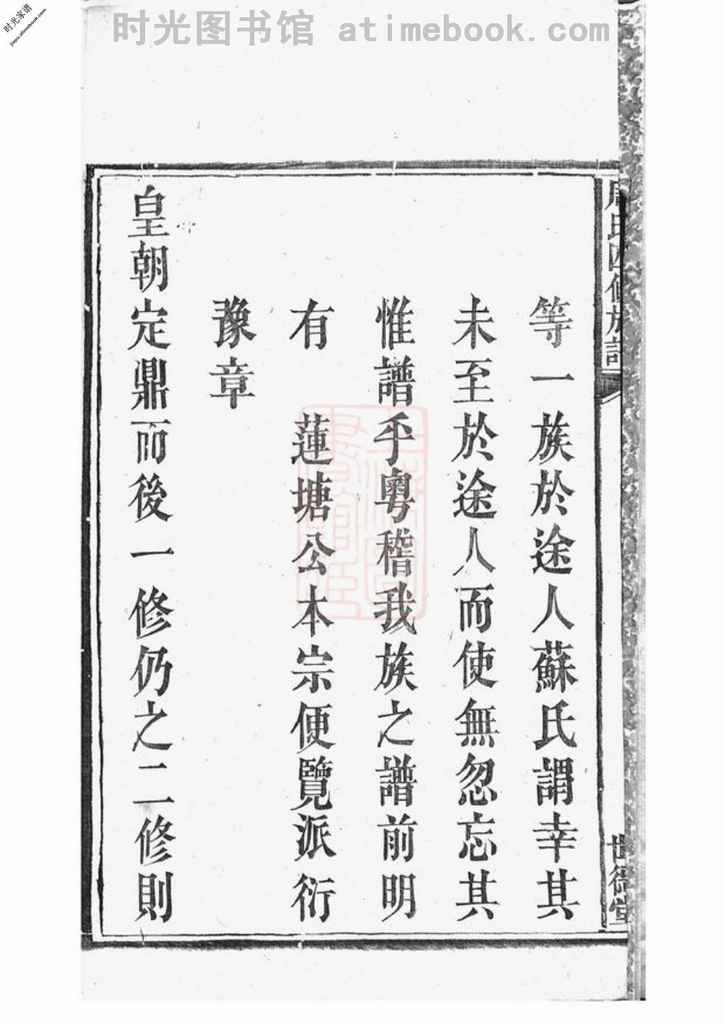 时光图书馆 atimebook.com
时光家谱
等一族於途人蘇氏謂幸其
未至於途人而使無忽忘其
惟譜乎粵稽我族之譜前明
有 蓮塘公本宗便覽派衍
豫章
皇朝定鼎而後一修仍之二修則
氏四修族譜
世德堂